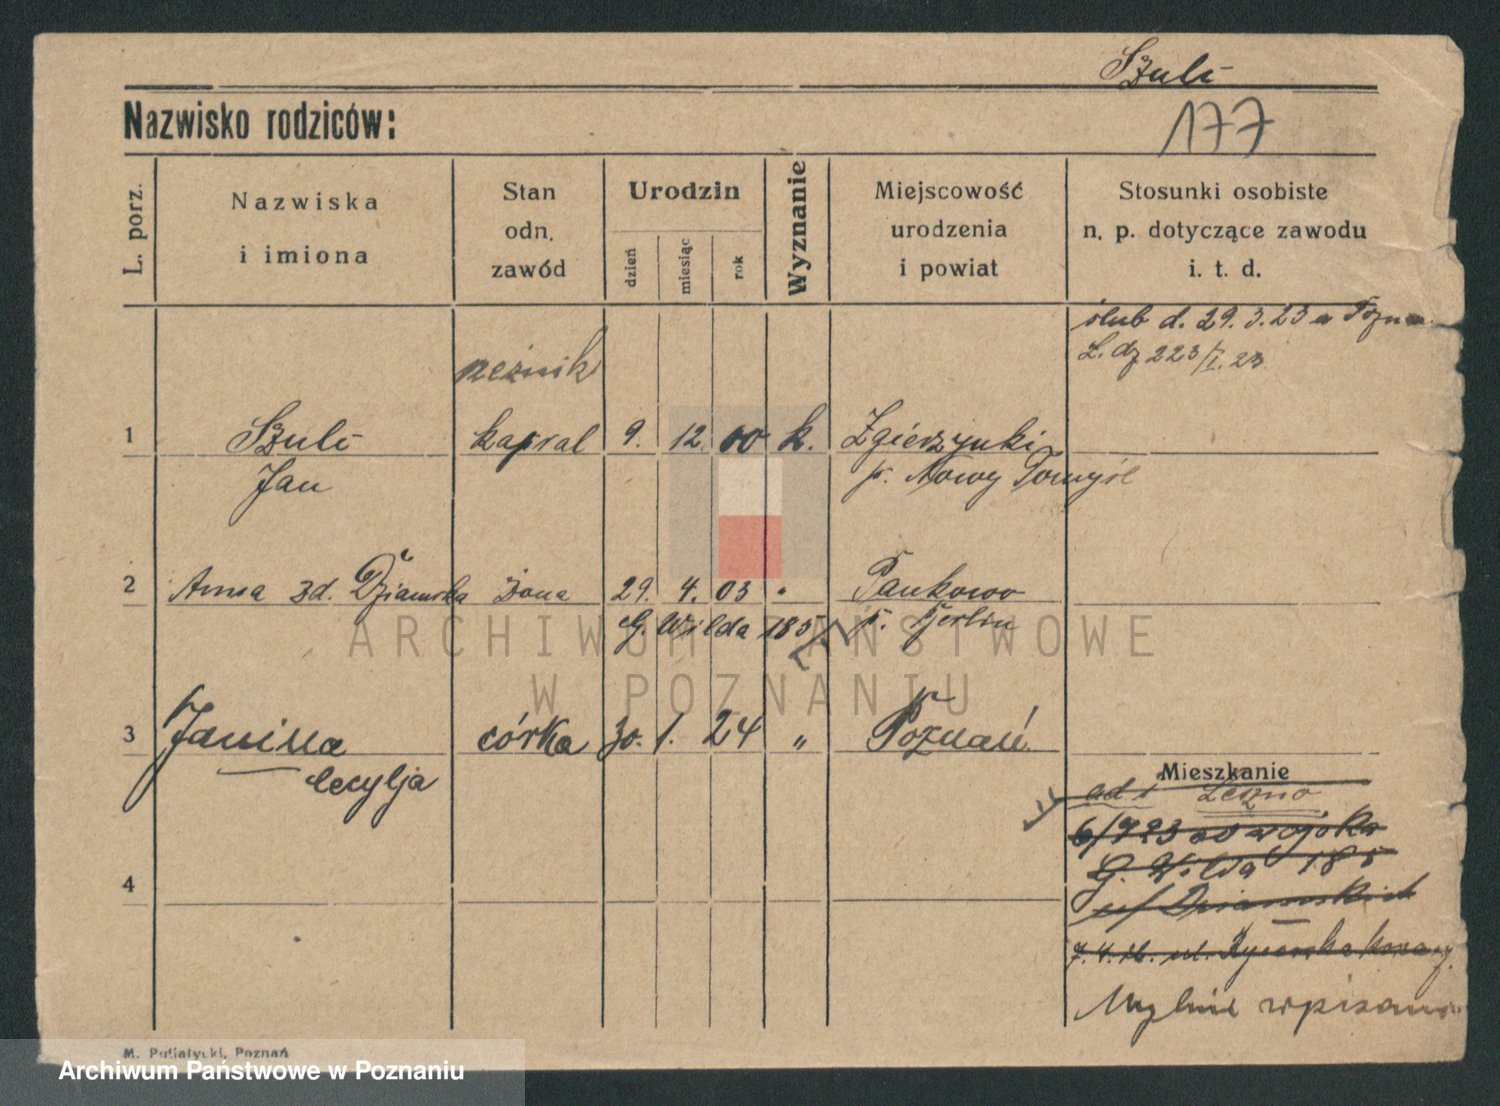 Szulc
177
Nazwisko rodziców:
L. porz.
Nazwiska
i imiona
Stan
odn.
zawód
Urodzin
dzień
miesiąc
rok
Wyznanie
Miejscowość
urodzenia
i powiat
Stosunki osobiste
n. p. dotyczące zawodu
i. t. d.
ślub d. 29. 3. 23 w Pozn
L. dz 223/I. 23
rzeźnik
1 Szulc kapral 9. 12. 00 k. Zgierzynki
Jan p. Nowy Tomyśl
2 Anna zd. Dziamska żona 29. 4. 03 " Pankowo
G. Wilda 185 p. Berlin
3 Janina córka 30. 1. 24 " Poznań
Cecylja
Mieszkanie
ad 1
6/7 23 do wojska
G. Wilda 185
u/ Dziamskich
4
7. 4. ul. Rycerska
Mylnie wpisano
M. Putiatycki, Poznań
ARCHIWUM PAŃSTWOWE
W POZNANIU
Archiwum Państwowe w Poznaniu